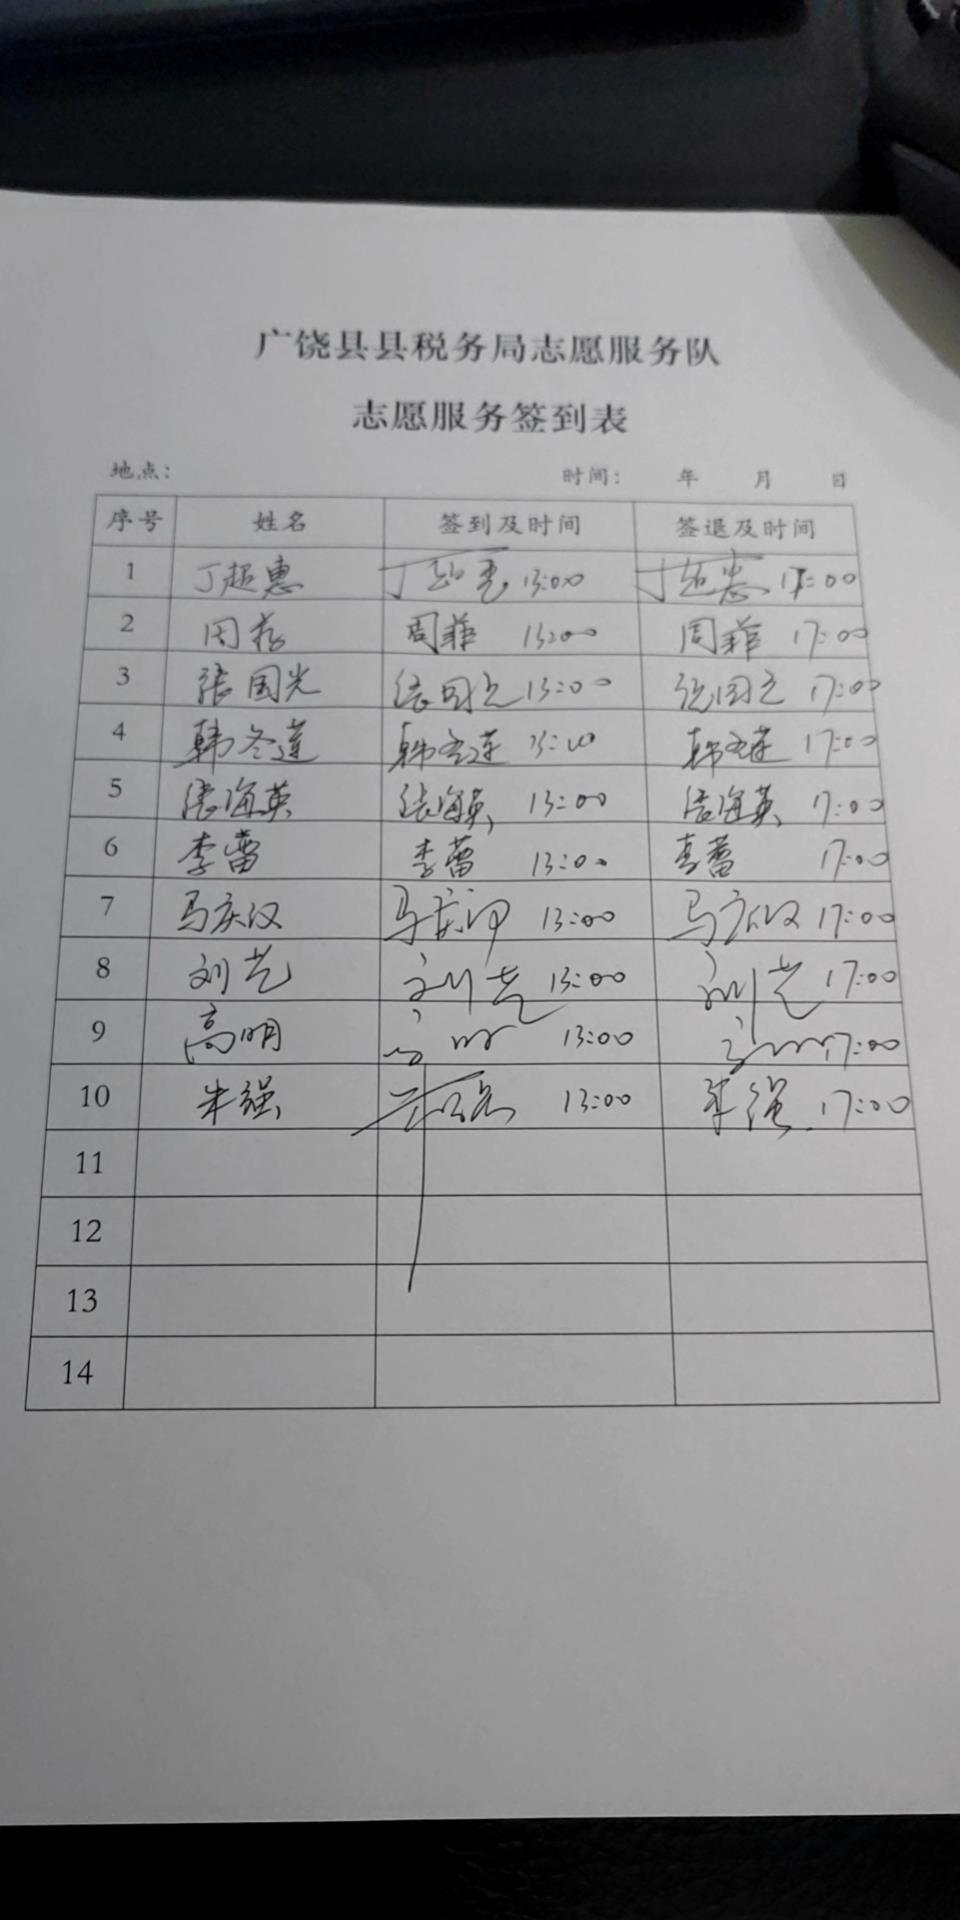 广饶县县税务局志愿服务队
志愿服务签到表
地点： 时间： 年 月 日
序号 姓名 签到及时间 签退及时间
1 丁超惠 丁超惠 13:00 丁超惠 17:00
2 周菲 13:00 周菲 17:00
3 张国光 张国光 13:00 张国光 17:00
4 韩冬莲 韩冬莲 13:00 韩冬莲 17:00
5 张海英 张海英 13:00 张海英 17:00
6 李蕾 李蕾 13:00 李蕾 17:00
7 马庆汉 马庆 13:00 马庆汉 17:00
8 刘艺 刘艺 13:00 刘艺 17:00
9 高明 高明 13:00 17:00
10 朱强 朱强 13:00 朱强 17:00
11
12
13
14